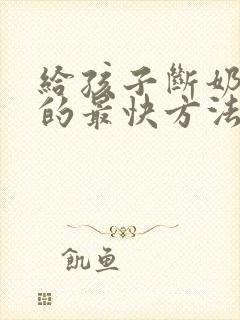 給孩子斷奶
的最快方法
飢鱼